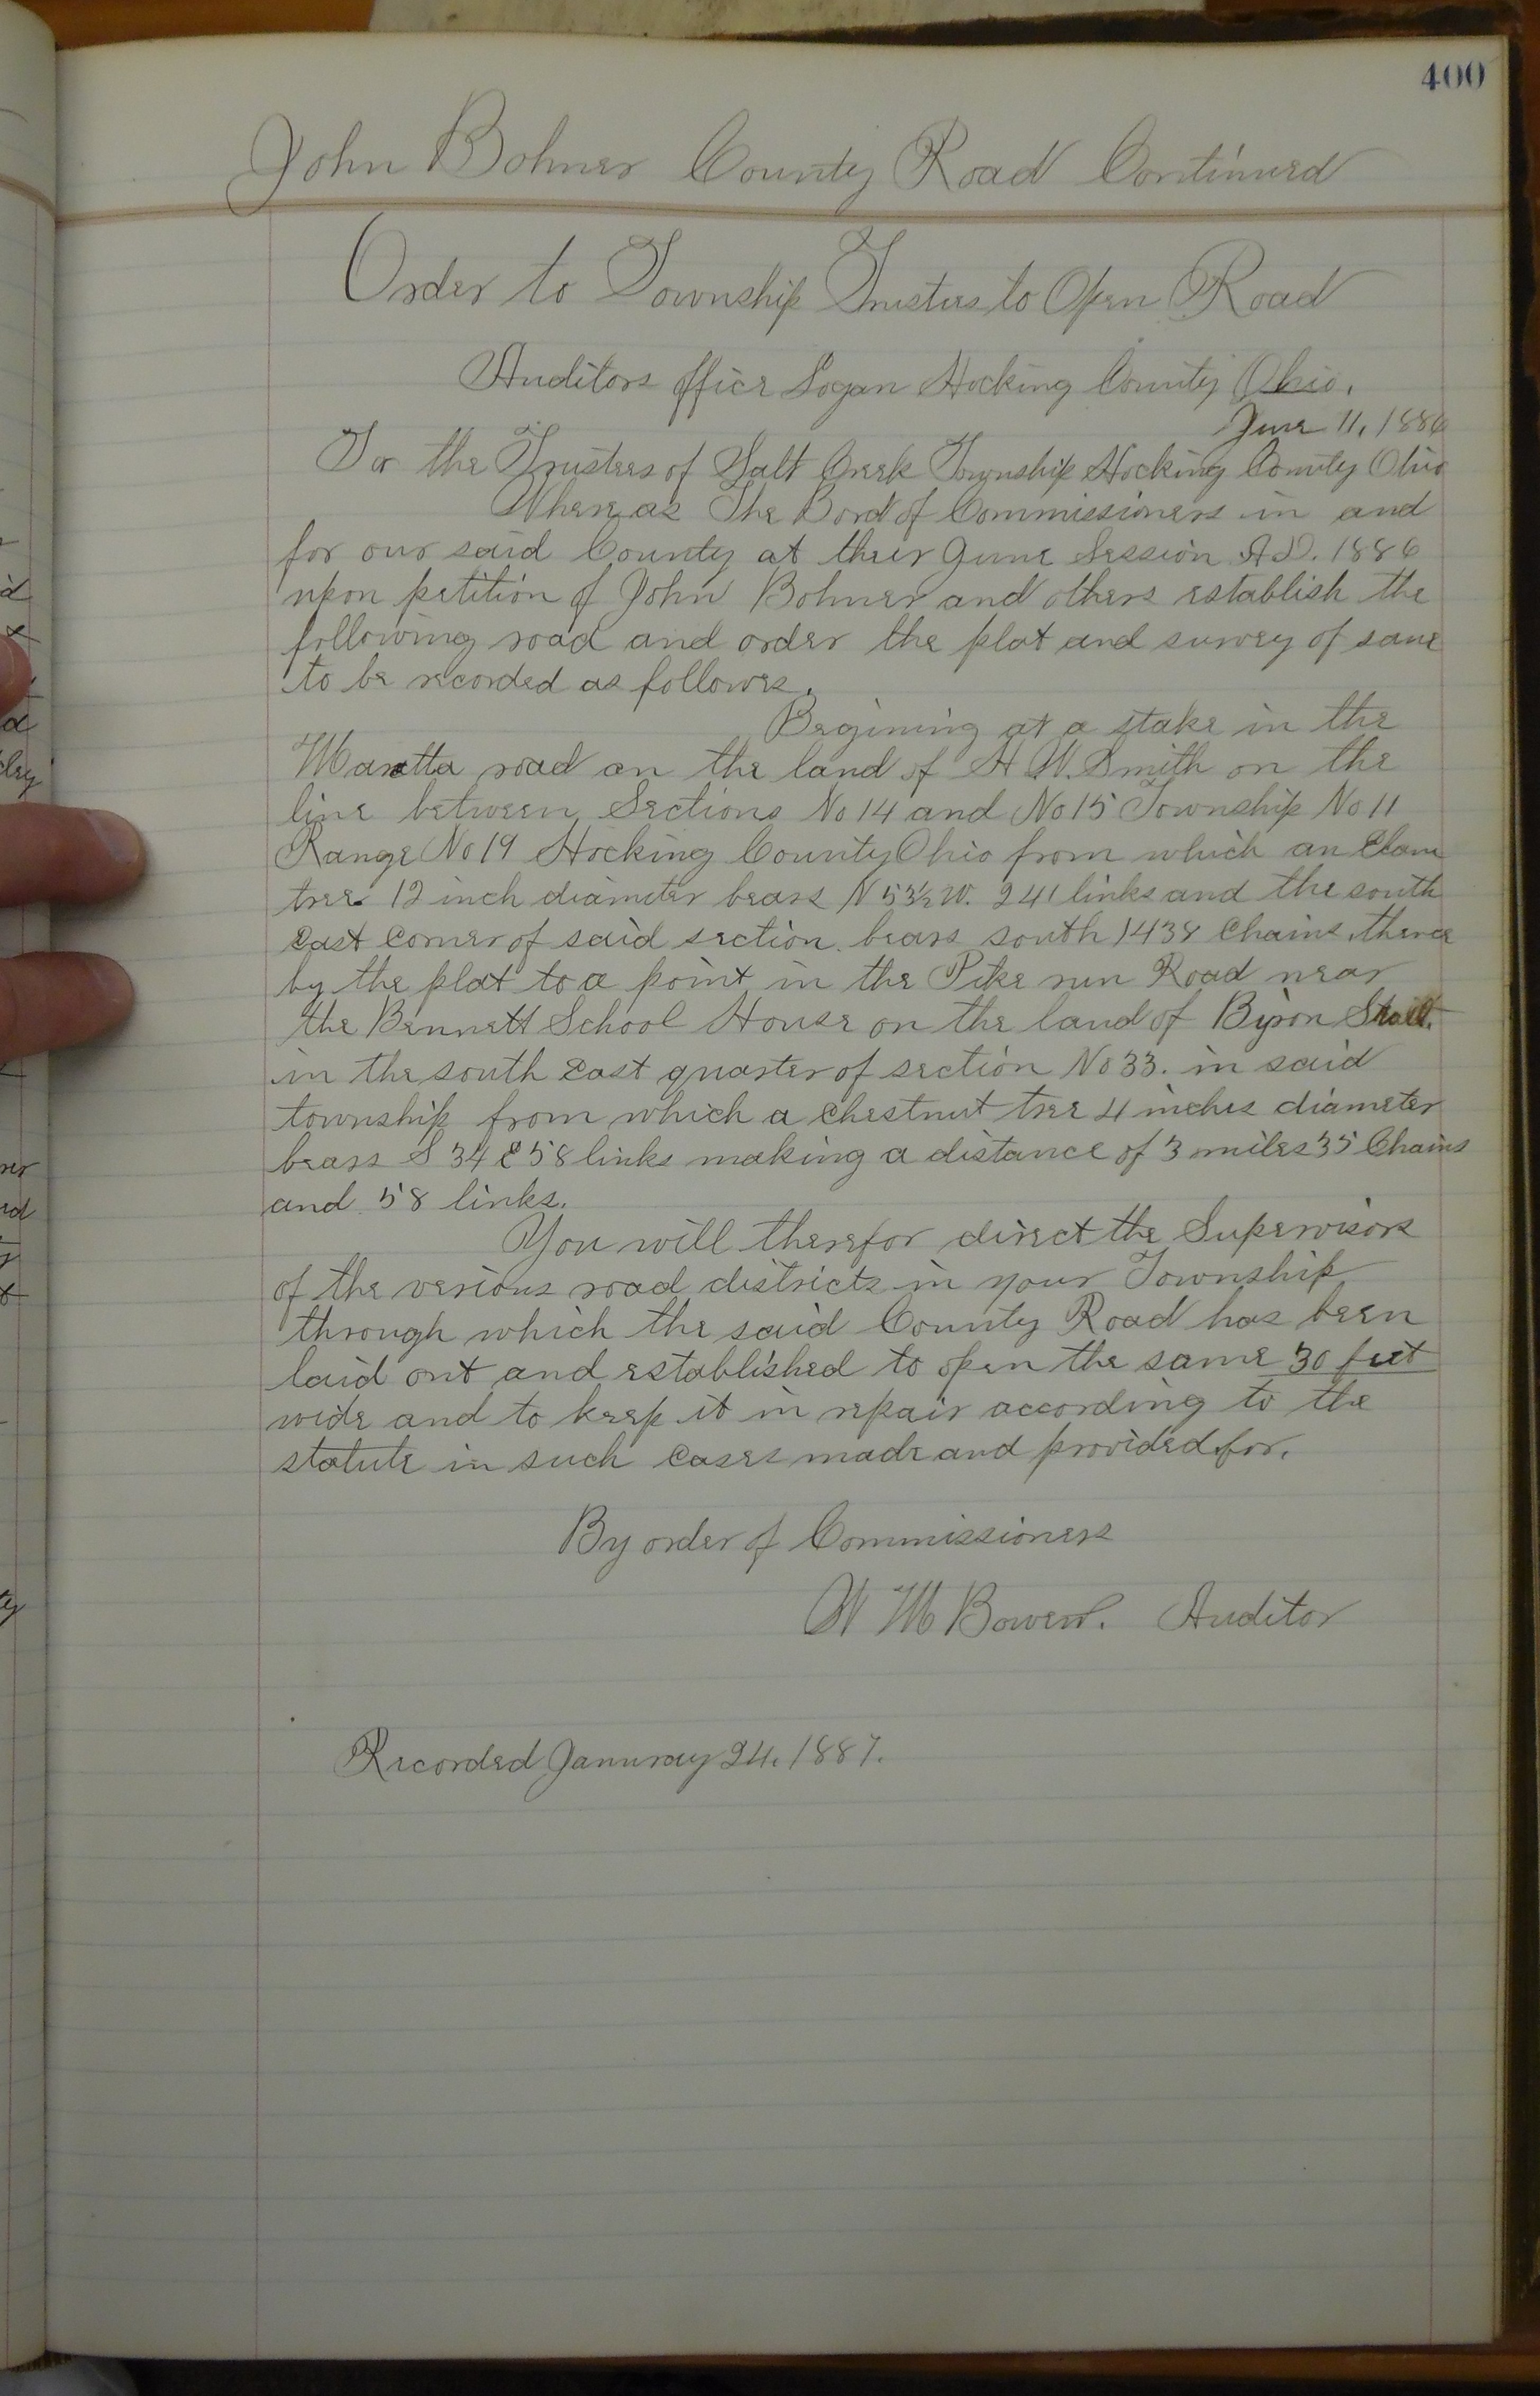 400
John Bohner County Road Continued
Order to Township Trustees to Open Road
Auditors office Logan Hocking County Ohio.
June 11, 1886
To the Trustees of Salt Creek Township Hocking County Ohio
Where as The Bord of Commissioners in and
for our said County at their June Session A.D. 1886
upon petition of John Bohner and others establish the
following road and order the plat and survey of same
to be recorded as follows.
Begining at a stake in the
Maretta road on the land of H W. Smith on the
line between Sections No 14 and No 15 Township No 11
Range No 19 Hocking County Ohio from which an Elam
tree 12 inch diameter bears N 53½ W. 241 links and the south
East Corner of said section bears south 1438 Chains thence
by the plat to a point in the Pike run Road near
the Bennett School House on the land of Byron
in the south East quarter of section No 33. in said
township from which a Chestnut tree 4 inches diameter
bears S 34 E 58 links making a distance of 3 miles 35 Chains
and 58 links.
You will therefor direct the Supervisors
of the verious road districts in your Township
through which the said County Road has been
laid out and established to open the same 30 feet
wide and to keep it in repair according to the
statute in such Cases made and provided for.
By order of Commissioners
W M Bowen. Auditor
Recorded January 24. 1887.